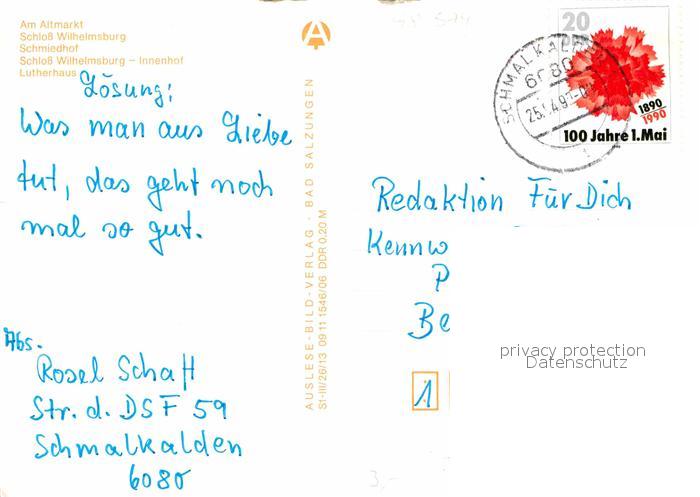 Am Altmarkt
Schloß Wilhelmsburg
Schmiedhof
Schloß Wilhelmsburg – Innenhof
Lutherhaus
Lösung:
Was man aus Liebe
tut, das geht noch
mal so gut.
Abs.
Rosel Schaft
Str. d. DSF 59
Schmalkalden
6080
AUSLESE-BILD-VERLAG · BAD SALZUNGEN
St-III/26/13 09 11 1546/06 DDR 0.20 M
20
DDR
1890
1990
100 Jahre 1. Mai
SCHMALKALDEN
6080
Redaktion Für Dich
Kennw
P
Be
1
privacy protection
Datenschutz
3,-